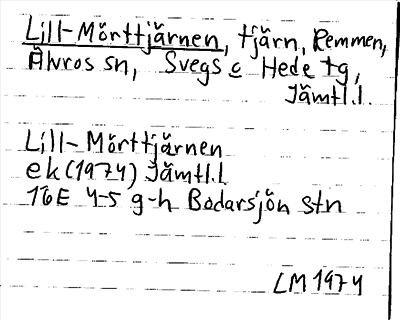 Lill-Mörttjärnen, tjärn, Remmen,
Älvros sn, Svegs o Hede tg,
Jämtl.l.
Lill-Mörttjärnen
ek (1974) Jämtl.l
16E 4-5 g-h Bodarsjön stn
LM 1974